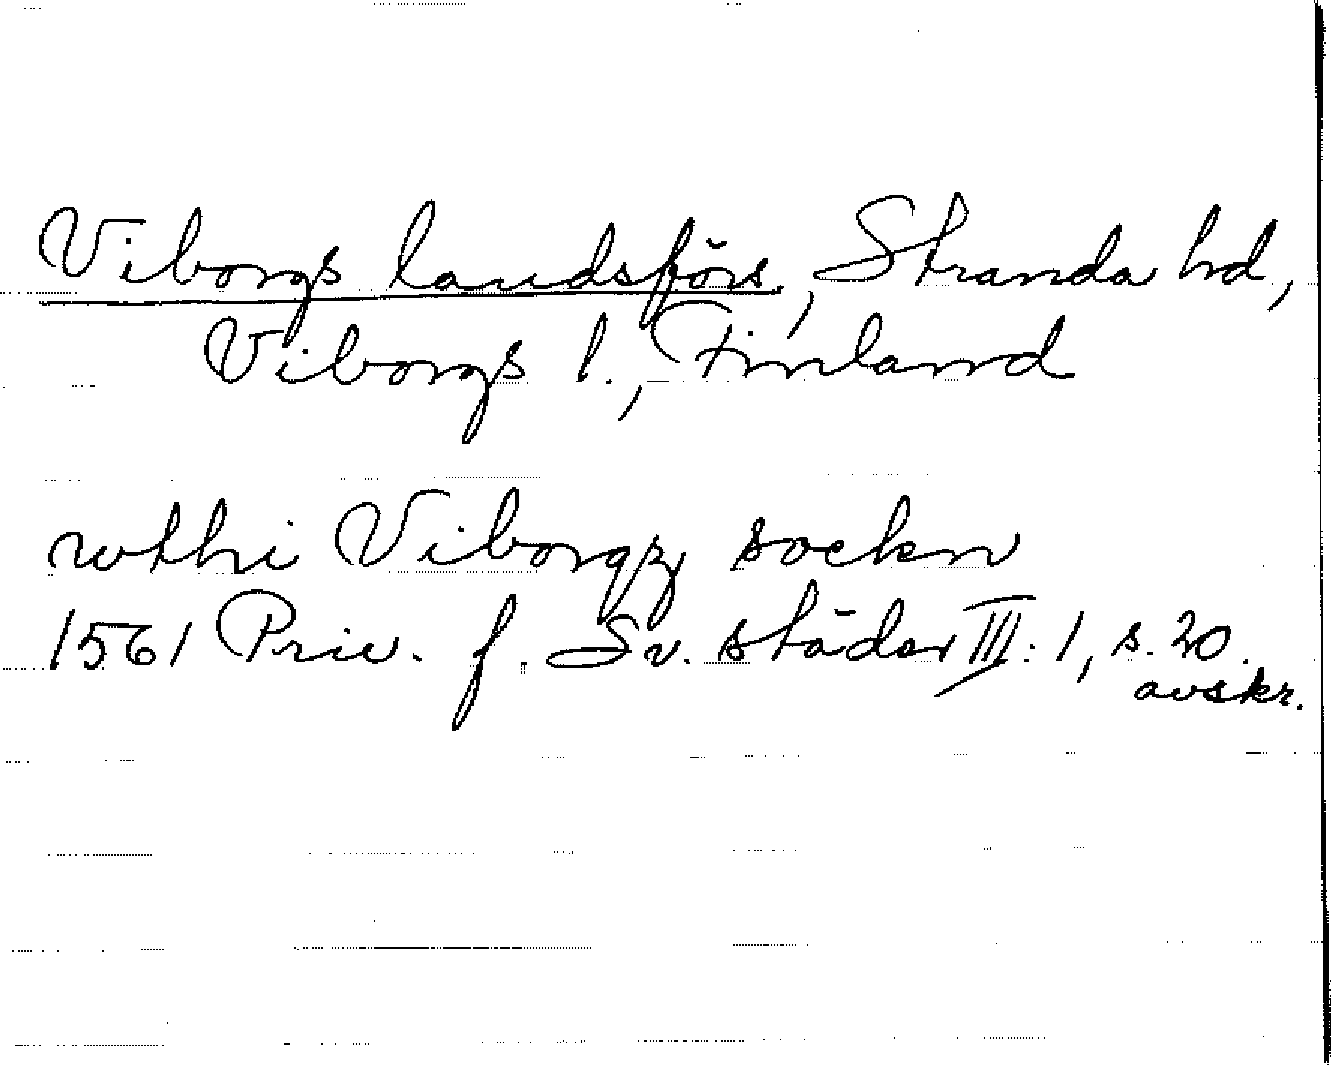 Viborgs landsförs., Stranda hd,
Viborgs l., Finland
wthi Viborgz sockn
1561 Priv. f. Sv. städer III: 1, s. 20.
avskr.